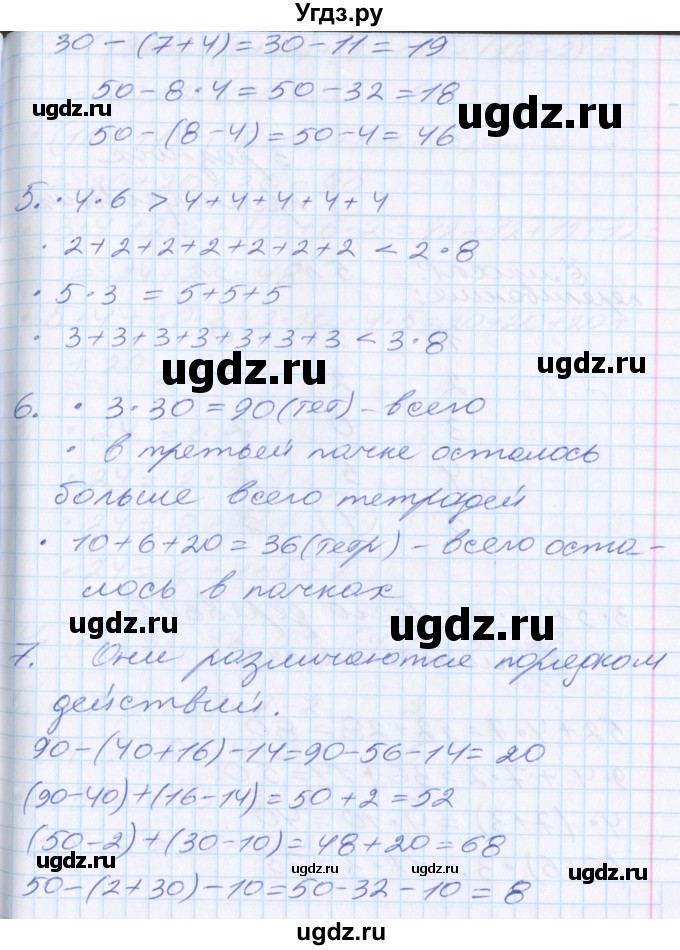 Угдз.ру
30 - (7+4) = 30 - 11 = 19
50 - 8 · 4 = 50 - 32 = 18
50 - (8 - 4) = 50 - 4 = 46
5. · 4 · 6 > 4 + 4 + 4 + 4 + 4
· 2+2+2+2+2+2+2 < 2 · 8
· 5 · 3 = 5 + 5 + 5
· 3+3+3+3+3+3+3 < 3 · 8
6. · 3 · 30 = 90 (тет) - всего
· в третьей пачке осталось
больше всего тетрадей
· 10 + 6 + 20 = 36 (тетр) - всего оста-
лось в пачках
7. Они различаются порядком
действий.
90 - (40+16) - 14 = 90 - 56 - 14 = 20
(90 - 40) + (16 - 14) = 50 + 2 = 52
(50 - 2) + (30 - 10) = 48 + 20 = 68
50 - (2 + 30) - 10 = 50 - 32 - 10 = 8
ugdz.ru
ugdz.ru
ugdz.ru
ugdz.ru
ugdz.ru
ugdz.ru
ugdz.ru
ugdz.ru
ugdz.ru
ugdz.ru
ugdz.ru
ugdz.ru
ugdz.ru
ugdz.ru